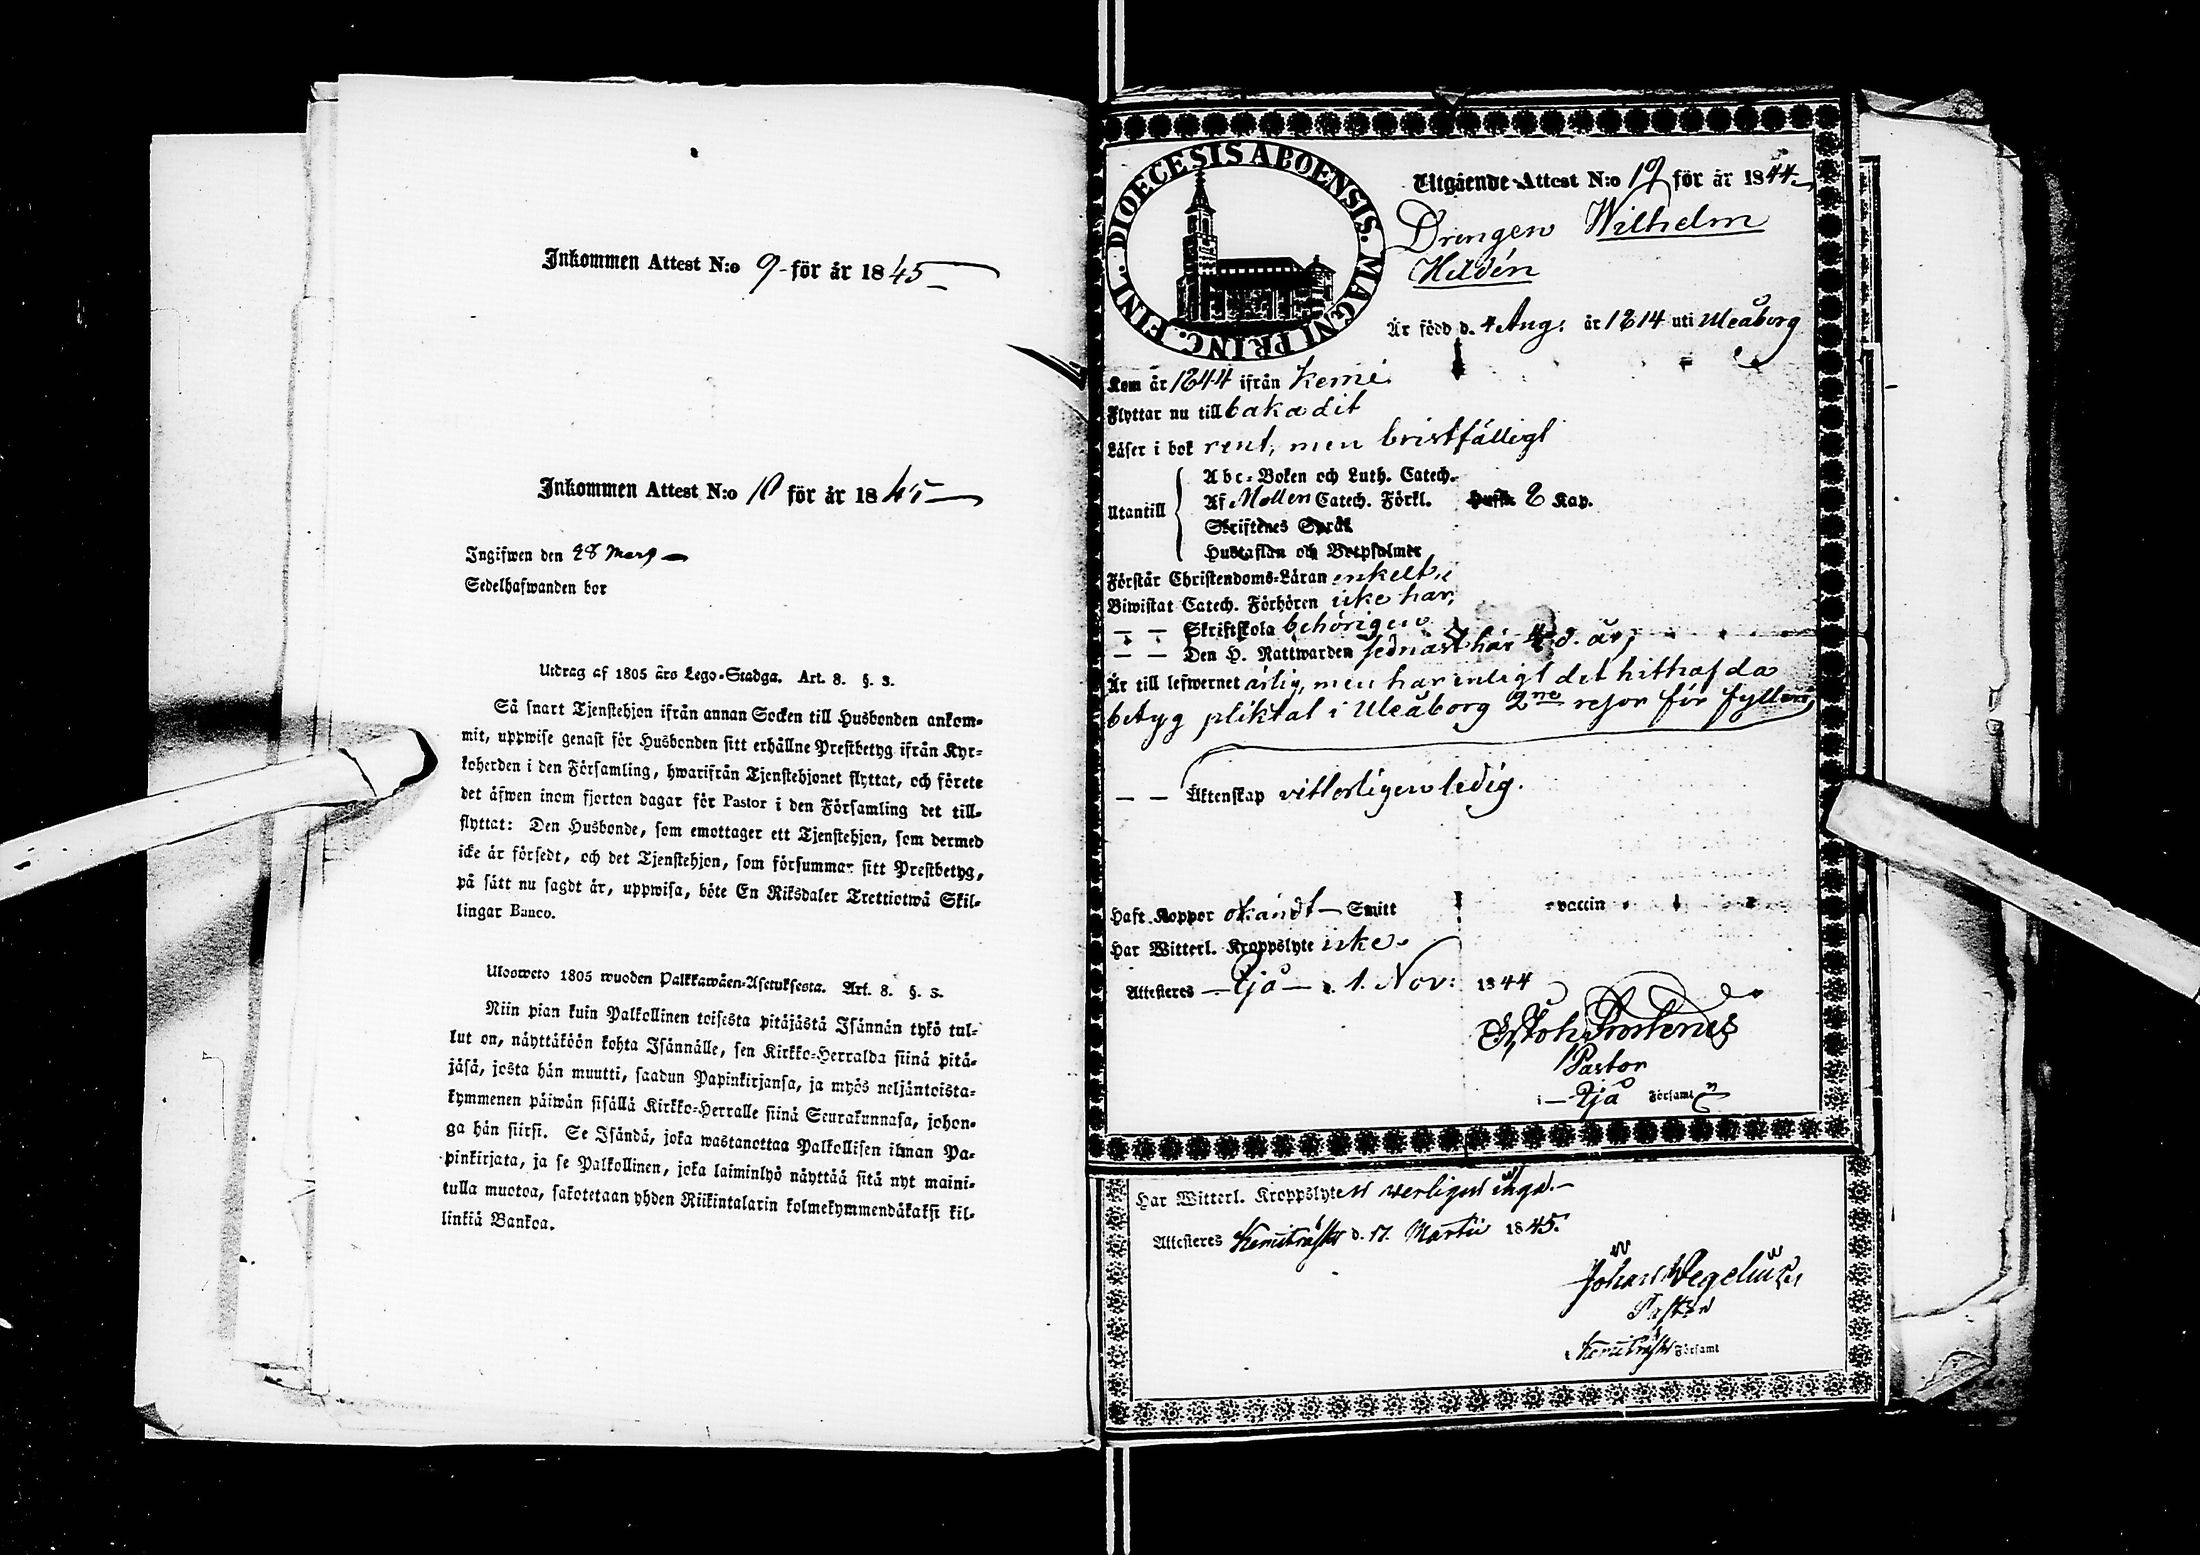 Inkommen Attest N:o 9 för år 1845
Inkommen Attest N:o 10 för år 1845
Ingifwen den 28 Mars
Sedelhafwanden bor
Utdrag af 1805 års Lego-Stadga. Art. 8. §. 3.
Så snart Tjenstehjon ifrån annan Socken till Husbonden ankom-
mit, uppwise genast för Husbonden sitt erhållne Prestbetyg ifrån Kyr-
koherden i den Församling, hwarifrån Tjenstehjonet flyttat, och förete
det äfwen inom fjorton dagar för Pastor i den Församling det till-
flyttat: Den Husbonde, som emottager ett Tjenstehjon, som dermed
icke är försedt, och det Tjenstehjon, som försummar sitt Prestbetyg,
på sätt nu sagdt är, uppwisa, böte En Riksdaler Trettiotwå Skil-
lingar Banco.
Ulosweto 1805 wuoden Palkkawäen-Asetuksesta. Art. 8. §. 3.
Niin pian kuin Palkollinen toisesta pitäjästä Isännän tykö tul-
lut on, näyttäköön kohta Isännälle, sen Kirkko-Herralda siinä pitä-
jäsä, josta hän muutti, saadun Papinkirjansa, ja myös neljäntoista-
kymmenen päiwän sisällä Kirkko-Herralle siinä Seurakunnasa, johon-
ga hän siirsi. Se Isändä, joka wastanottaa Palkollisen ilman Pa-
pinkirjata, ja se Palkollinen, joka laiminlyö näyttää sitä nyt maini-
tulla muotoa, sakotetaan yhden Riikintalarin kolmekymmendäkaksi kil-
linkiä Bankoa.
DIOECESIS ABOENSIS. MAGNI PRINC. FINL.
Utgående Attest N:o 19 för år 1844
Drengen Wilhelm
Hildén
Är född d. 4 Aug: år 1814 uti Uleåborg
Kom år 1844 ifrån Kemi
Flyttar nu till baka dit
Läser i bok rent, men bristfälligt
Utantill
Abc-Boken och Luth. Catech.
Af Möllers Catech. Förkl. 2 Kap.
Skriftenes Språk
Hustaflan och Botpsalmer
Förstår Christendoms-Läran enkelt,
Biwistat Catech. Förhören icke här,
— — Skriftskola behörigen
— — Den H. Nattwarden sednast här d. år,
Är till lefwernet ärlig, men har enligt det hithafda
betyg pliktat i Uleåborg 2ne resor för fylleri,
— — Äktenskap vitterligen ledig.
Haft Koppor okändt — Smitt vaccin
Har Witterl. Kroppslyte icke.
Attesteres — Ijå — d. 1. Nov: 1844
Pastor
i — Ijå Församl
Har Witterl. Kroppslyten werligen inga.
Attesteres Kemiträsk d. 17. Martii 1845.
Johan Wegelius
Pastor
i Kemiträsk Församl